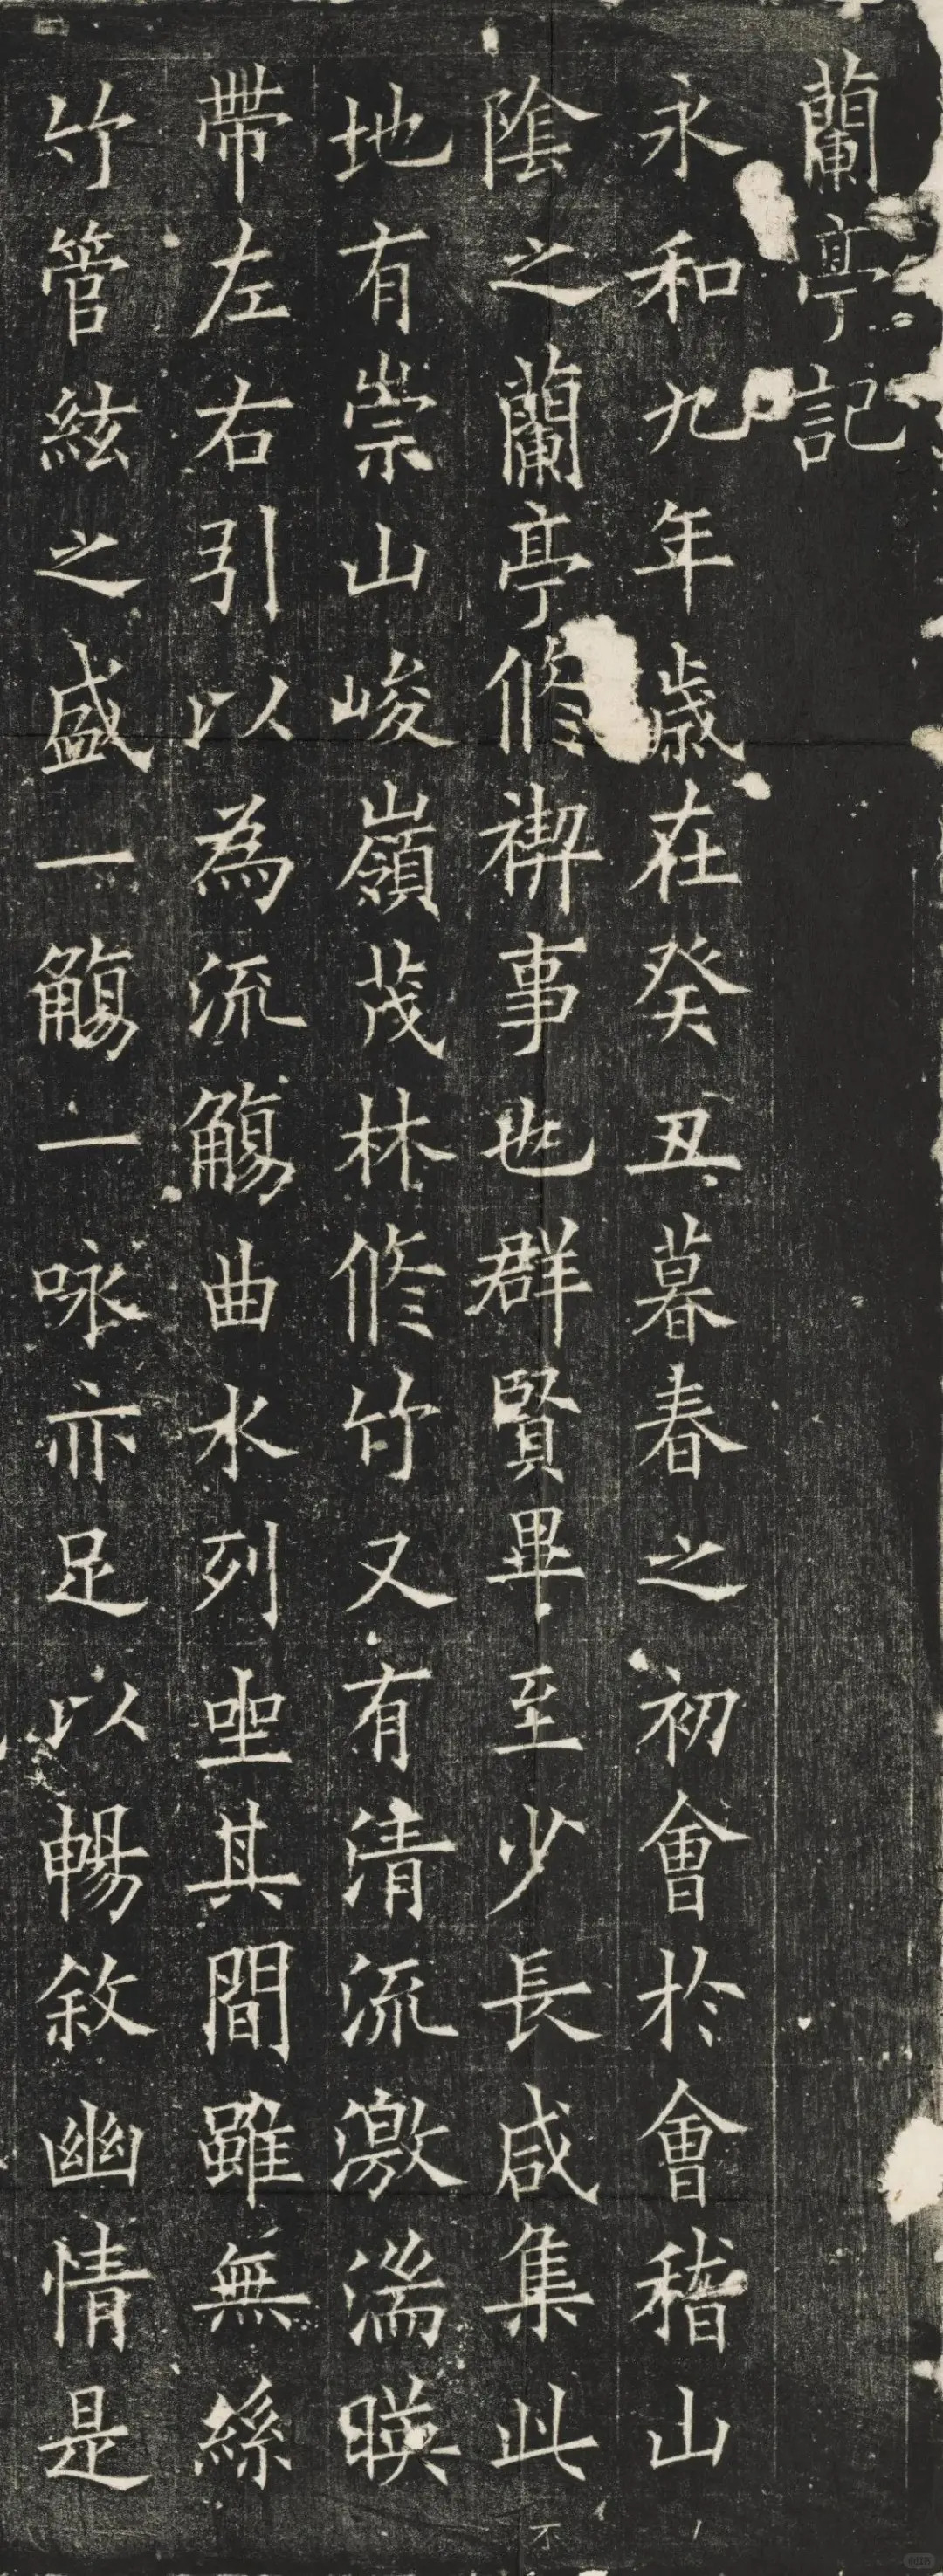 蘭亭記
永和九年歲在癸丑暮春之初會於會稽山
陰之蘭亭修禊事也群賢畢至少長咸集此
地有崇山峻嶺茂林修竹又有清流激湍暎
帶左右引以為流觴曲水列坐其間雖無絲
竹管絃之盛一觴一咏亦足以暢敘幽情是
不